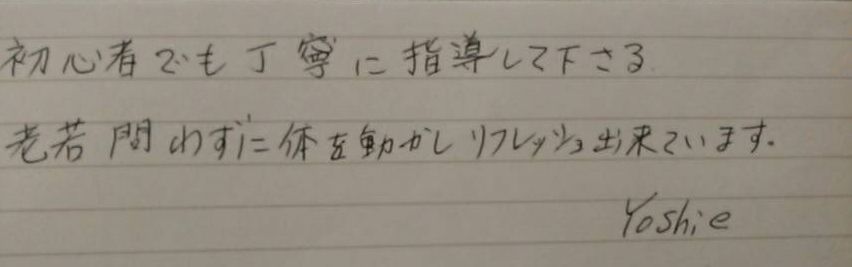 初心者でも丁寧に指導して下さる
老若問わずに体を動かしリフレッシュ出来ています.
Yoshie